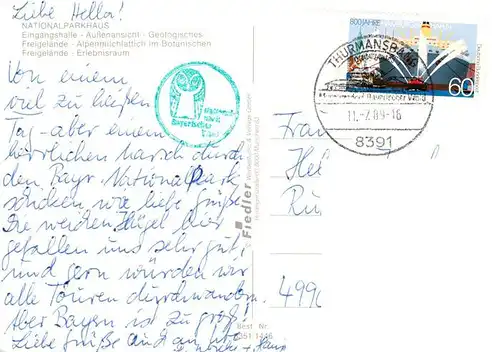 Liebe Hella!
NATIONALPARKHAUS
Eingangshalle - Außenansicht - Geologisches
Freigelände - Alpenmilchlattich im Botanischen
Freigelände - Erlebnisraum
Von einem
viel zu heißen
Tag - aber einem
herrlichen Marsch durch
den Bayr. Nationalpark
schicken wir liebe Grüße.
Die weiten Hügel hier
gefallen uns sehr gut,
und gern würden wir
alle Touren durchwandern.
Aber Bayern ist zu groß!
Liebe Grüße auch an
Nationalpark
Bayerischer
Wald
Fiedler
Best. Nr.
800 JAHRE
60
THURMANSBANG
Bayerischer Wald
11.-7.89-16
8391
Frau
He
Ru
499